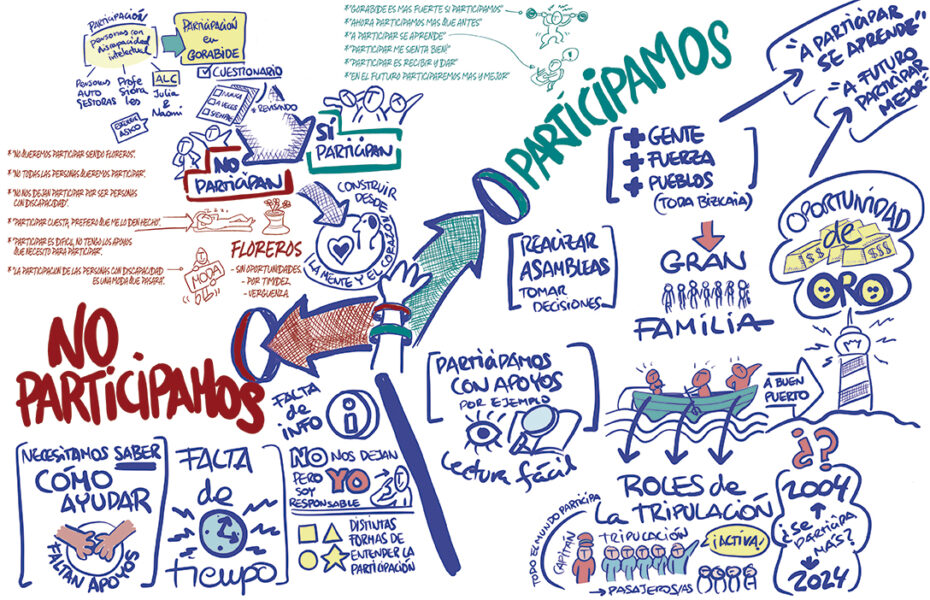 PARTICIPACIÓN
personas con
discapacidad
intelectual
PARTICIPACIÓN
en
GORABIDE
Personas
AUTO
GESTORAS
Profe
siona
les
ALC
Julia
&
Naomi
CUESTIONARIO
NUNCA
A VECES
SIEMPRE
REVISANDO
NO
PARTICIPAN
SÍ
PARTICIPAN
*"GORABIDE ES MAS FUERTE SI PARTICIPAMOS"
*"AHORA PARTICIPAMOS MAS QUE ANTES"
*"A PARTICIPAR SE APRENDE"
*"PARTICIPAR ME SIENTA BIEN"
*"PARTICIPAR ES RECIBIR Y DAR"
*"EN EL FUTURO PARTICIPAREMOS MAS Y MEJOR"
*"NO QUEREMOS PARTICIPAR SIENDO FLOREROS".
*"NO TODAS LAS PERSONAS QUEREMOS PARTICIPAR".
*"NO NOS DEJAN PARTICIPAR POR SER PERSONAS
CON DISCAPACIDAD".
*"PARTICIPAR CUESTA, PREFIERO QUE ME LO DEN HECHO".
*"PARTICIPAR ES DIFICIL, NO TENGO LOS APOYOS
QUE NECESITO PARA PARTICIPAR".
*"LA PARTICIPACION DE LAS PERSONAS CON DISCAPACIDAD
ES UNA MODA QUE PASARA".
MODA
FLOREROS
- SIN OPORTUNIDADES.
- POR TIMIDEZ
- VERGÜENZA
CONSTRUIR
DESDE
LA MENTE Y EL CORAZÓN
PARTICIPAMOS
NO
PARTICIPAMOS
NECESITAMOS SABER
CÓMO
AYUDAR
FALTAN APOYOS
FALTA
de
tiempo
FALTA
de
INFO
i
NO NOS DEJAN
PERO YO
SOY
RESPONSABLE
DISTINTAS
FORMAS DE
ENTENDER LA
PARTICIPACIÓN
REALIZAR
ASAMBLEAS
TOMAR
DECISIONES
PARTICIPAMOS
CON APOYOS
POR EJEMPLO
Lectura fácil
+ GENTE
+ FUERZA
+ PUEBLOS
(TODA BIZKAIA)
GRAN
FAMILIA
"A PARTICIPAR
SE APRENDE"
"A FUTURO
PARTICIPAR
MEJOR"
OPORTUNIDAD
de
$$$
$$$
ORO
A BUEN
PUERTO
ROLES de
La TRIPULACIÓN
TODO EL MUNDO PARTICIPA
CAPITÁN
TRIPULACIÓN
¡ACTIVA!
→ PASAJEROS/AS
¿?
2004
¿Se
PARTICIPA
MÁS?
2024